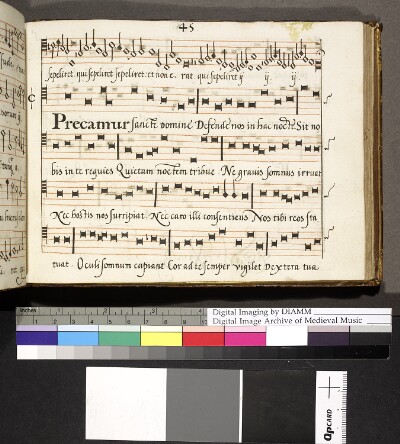 45
sepeliret. qui sepeliret sepeliret. et non e. rat. qui sepeliret ij ij ij
Precamur sancte domine Defende nos in hac nocte Sit no
bis in te requies Quietam noctem tribue Ne gravis somnus irruat
Nec hostis nos surripiat. Nec caro illi consentiens Nos tibi reos sta
tuat. Oculi somnum capiant Cor ad te semper vigilet Dextera tua
inches
Digital Imaging by DIAMM
Digital Image Archive of Medieval Music
QPCARD